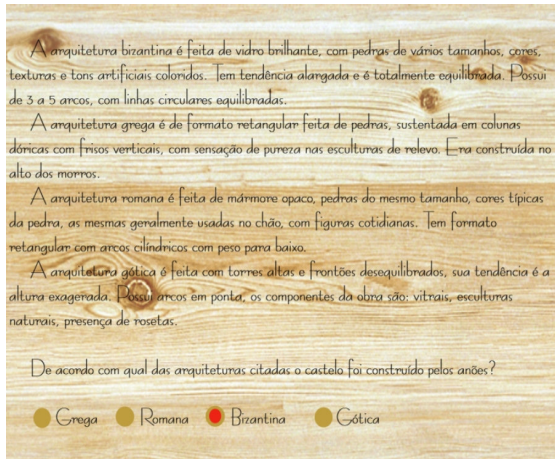 A arquitetura bizantina é feita de vidro brilhante, com pedras de vários tamanhos, cores,
texturas e tons artificiais coloridos. Tem tendência alargada e é totalmente equilibrada. Possui
de 3 a 5 arcos, com linhas circulares equilibradas.
A arquitetura grega é de formato retangular feita de pedras, sustentada em colunas
dóricas com frisos verticais, com sensação de pureza nas esculturas de relevo. Era construída no
alto dos morros.
A arquitetura romana é feita de mármore opaco, pedras do mesmo tamanho, cores típicas
da pedra, as mesmas geralmente usadas no chão, com figuras cotidianas. Tem formato
retangular com arcos cilíndricos com peso para baixo.
A arquitetura gótica é feita com torres altas e frontões desequilibrados, sua tendência é a
altura exagerada. Possui arcos em ponta, os componentes da obra são: vitrais, esculturas
naturais, presença de rosetas.
De acordo com qual das arquiteturas citadas o castelo foi construído pelos anões?
Grega Romana Bizantina Gótica